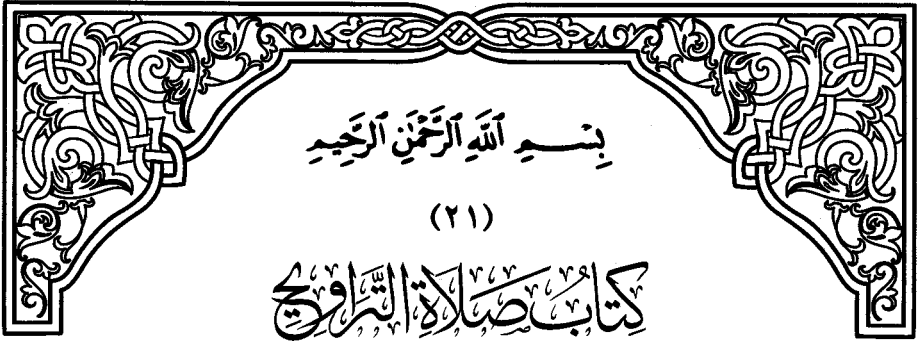 بِسْمِ ٱللَّهِ ٱلرَّحْمَٰنِ ٱلرَّحِيمِ
(٢١)
كِتَابُ صَلَاةِ التَّرَاوِيحِ